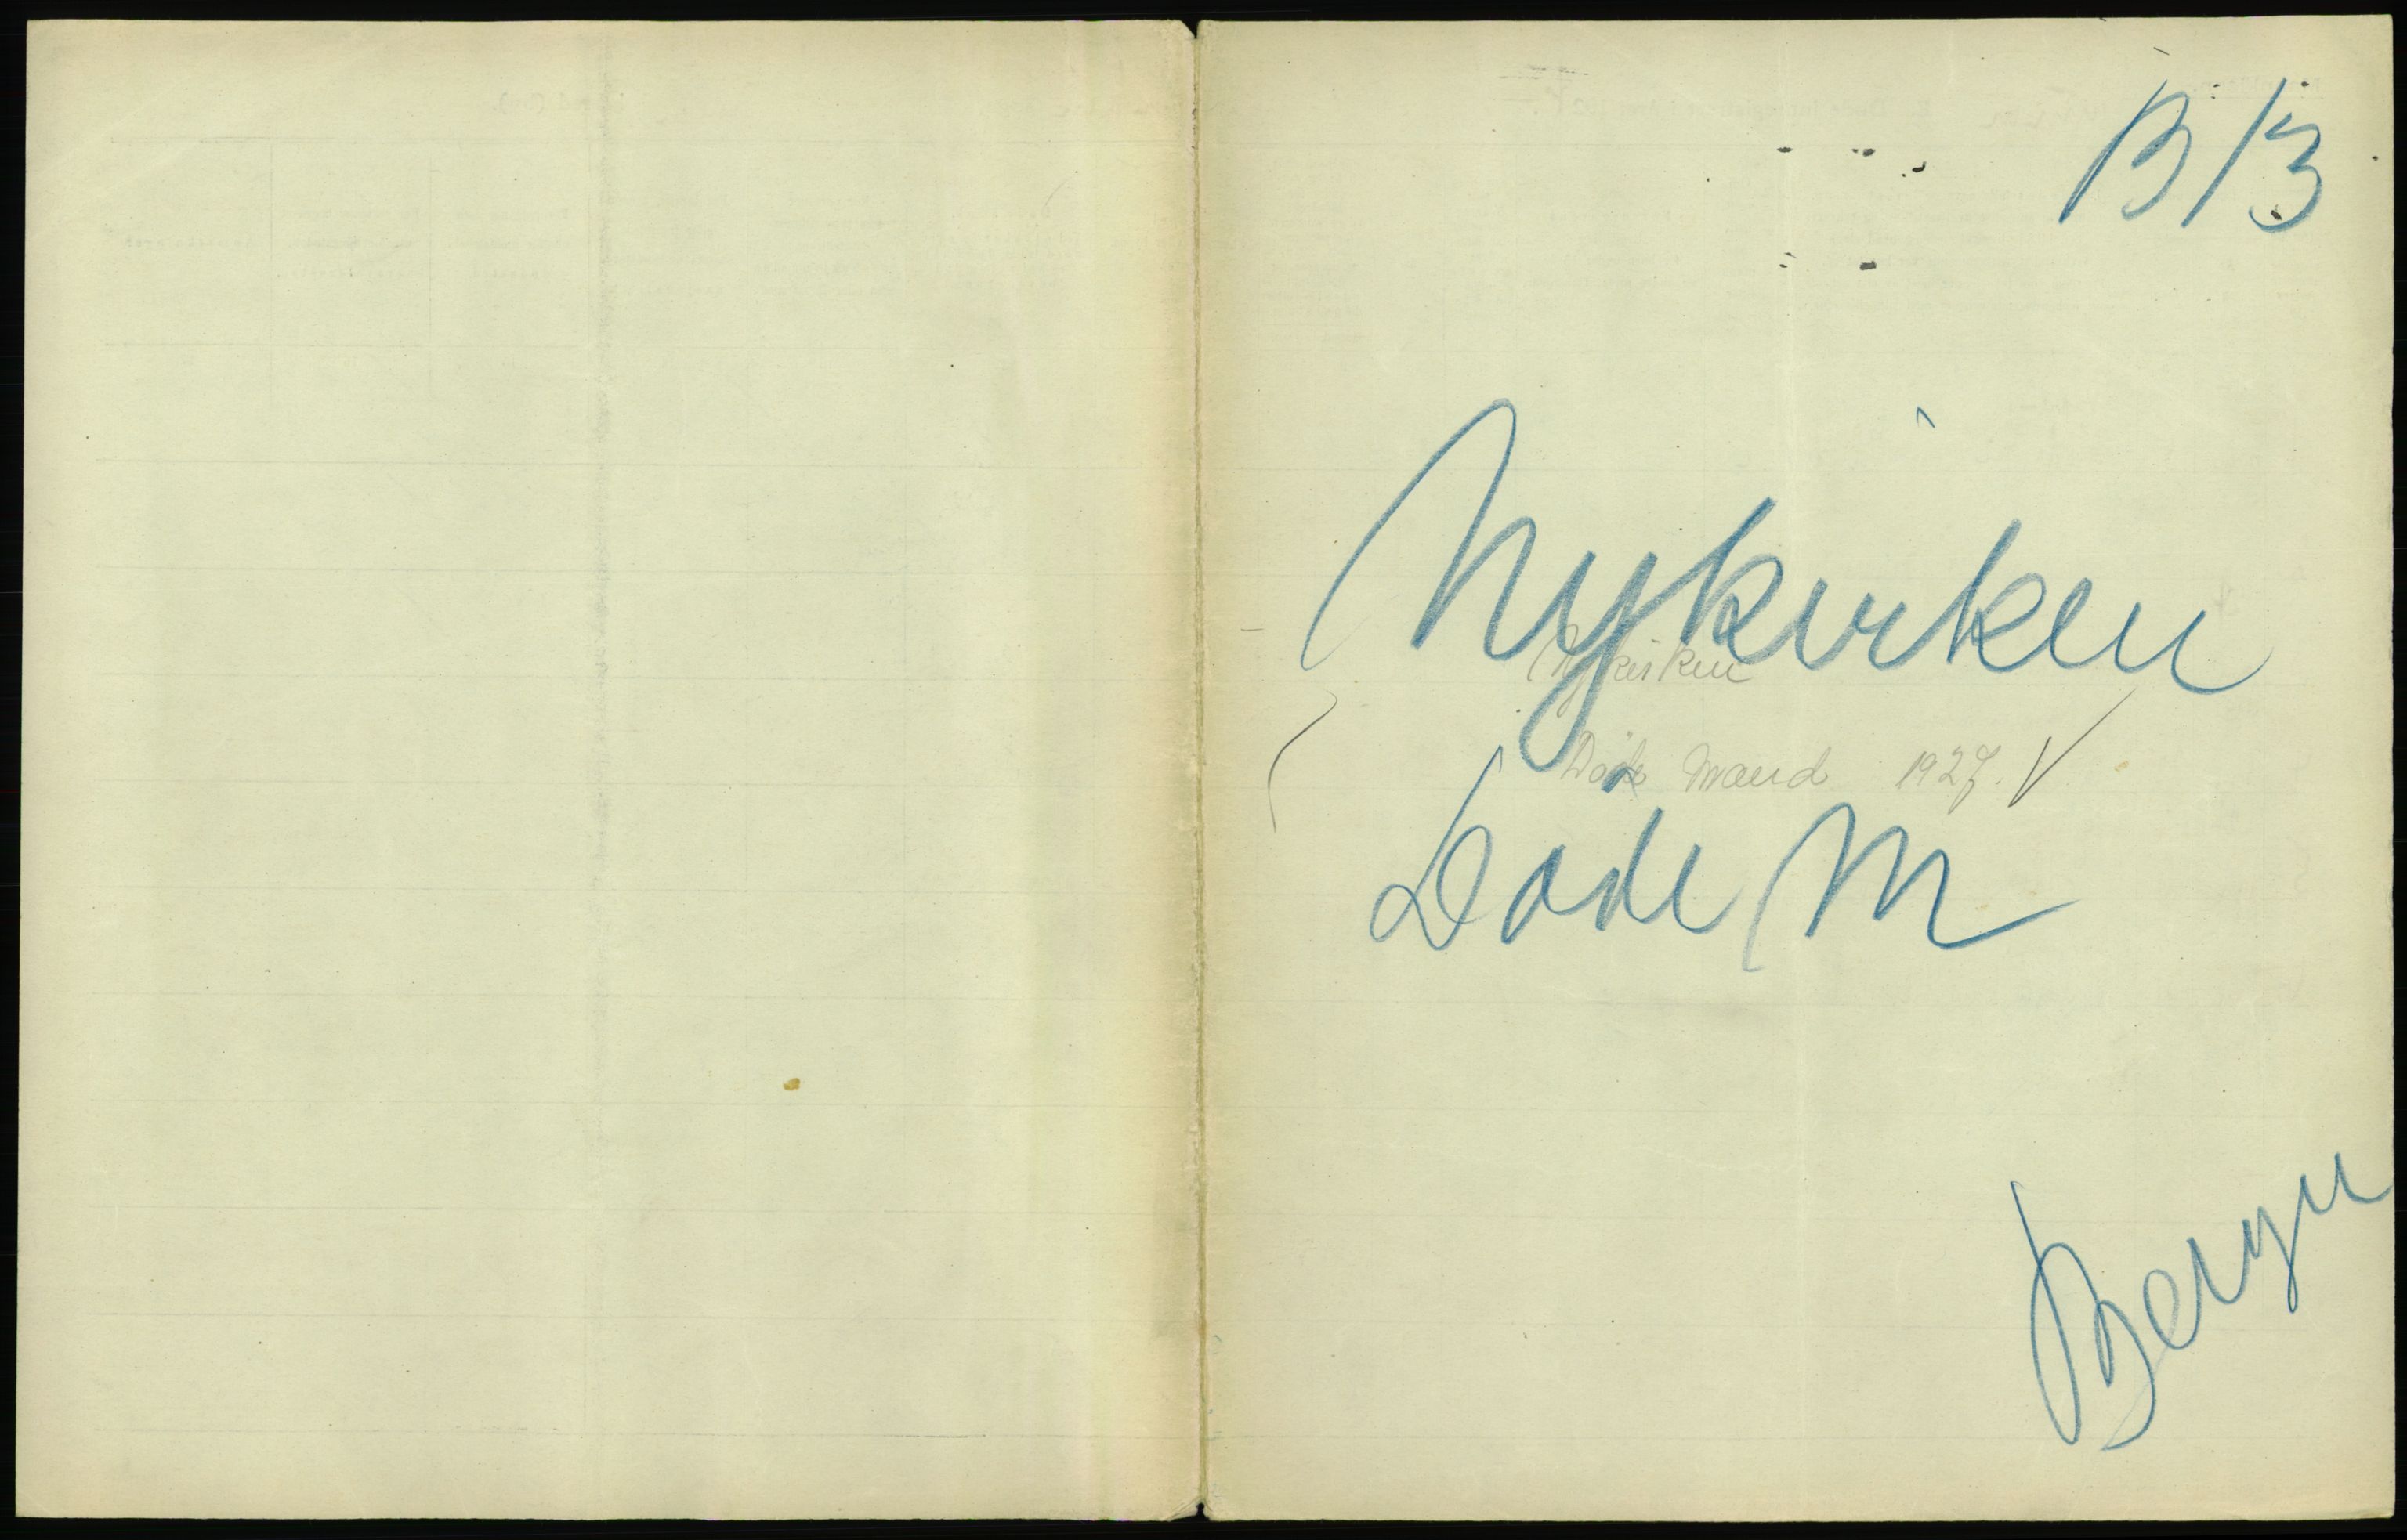 B/3
Nykirken
Nykirken
Døde Mænd 1927.
Døde M
Bergen